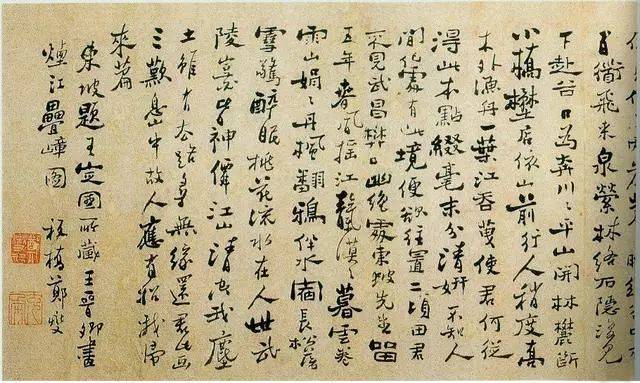 百衟飛来泉縈林絡石隱復見
下赴谷口為奔川〻平山開林麓斷
小橋壄店依山前行人稍度喬
木外漁舟一葉江吞天使君何從
得此本點綴毫末分清妍不知人
間何處有此境便欲往置二頃田君
不見武昌樊口幽絕處東坡先生留
五年春風搖江天漠〻暮雲卷
雨山娟〻丹楓翻鴉伴水宿長松落
雪驚醉眠桃花流水在人世武
陵豈皆神僊江山清空我塵
土雖有去路尋無緣還君此畫
三歎息山中故人應有招我歸
來篇
東坡題王定國所藏王晉卿畫
煙江疊嶂圖 板橋鄭燮